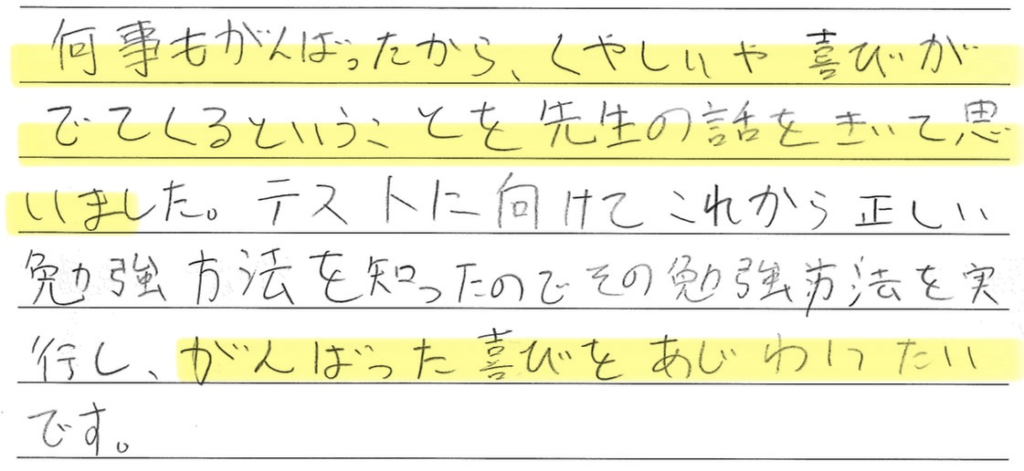 何事もがんばったから、くやしいや喜びが
でてくるということを先生の話をきいて思
いました。テストに向けてこれから正しい
勉強方法を知ったのでその勉強方法を実
行し、がんばった喜びをあじわいたい
です。